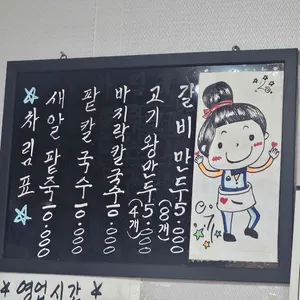 ☆차림표☆
새알팥죽 10.000
팥칼국수 10.000
바지락칼국수 10.000
고기왕만두 5.000
(4개)
갈비만두 5.000
(8개)
*영업시간*